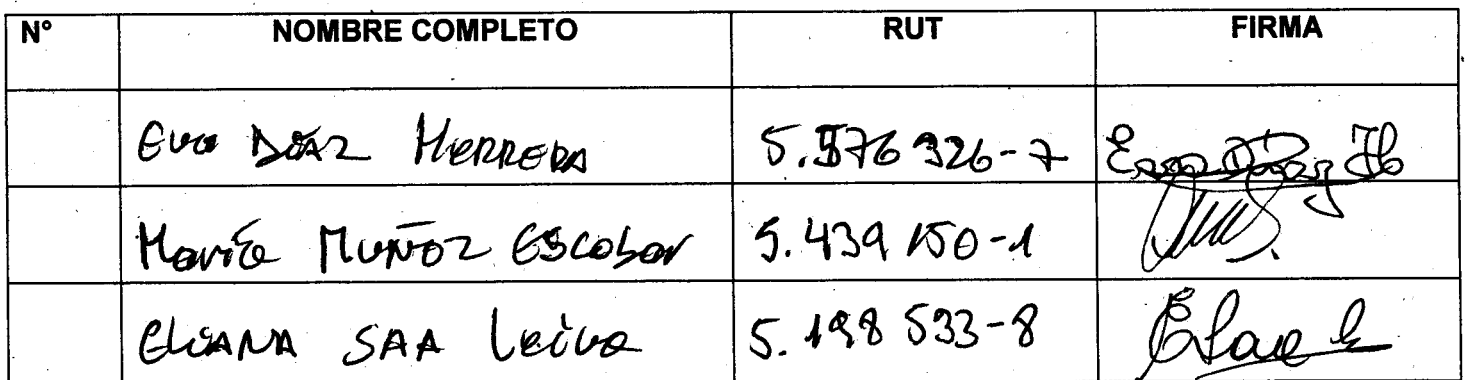 N° NOMBRE COMPLETO RUT FIRMA
Eva Díaz Herrera 5.576 326-7 Eva Díaz H
María Muñoz Escobar 5.439 150-1
Eliana SAA Leiva 5.198 533-8